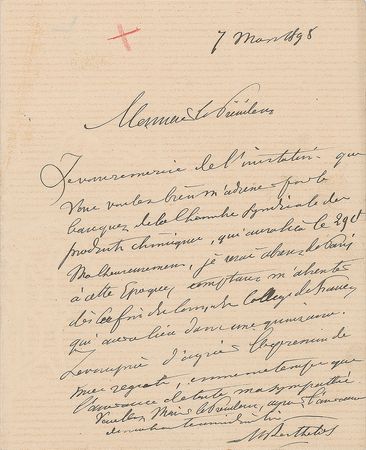 7 Mars 1898
Monsieur le Président
Je vous remercie de l'invitation que
vous voulez bien m'adresser pour le
banquet de la Chambre Syndicale des
produits chimiques, qui aura lieu le 29 ct
Malheureusement, je serai absent de Paris
à cette Epoque, comptant m'absenter
dès la fin du Collège de France,
qui aura lieu dans une quinzaine.
Je vous prie d'agréer l'expression de
mes regrets, en même temps que
l'assurance de toute ma sympathie
Veuillez, Mons le Président, agréer l'assurance
de
M Berthelot